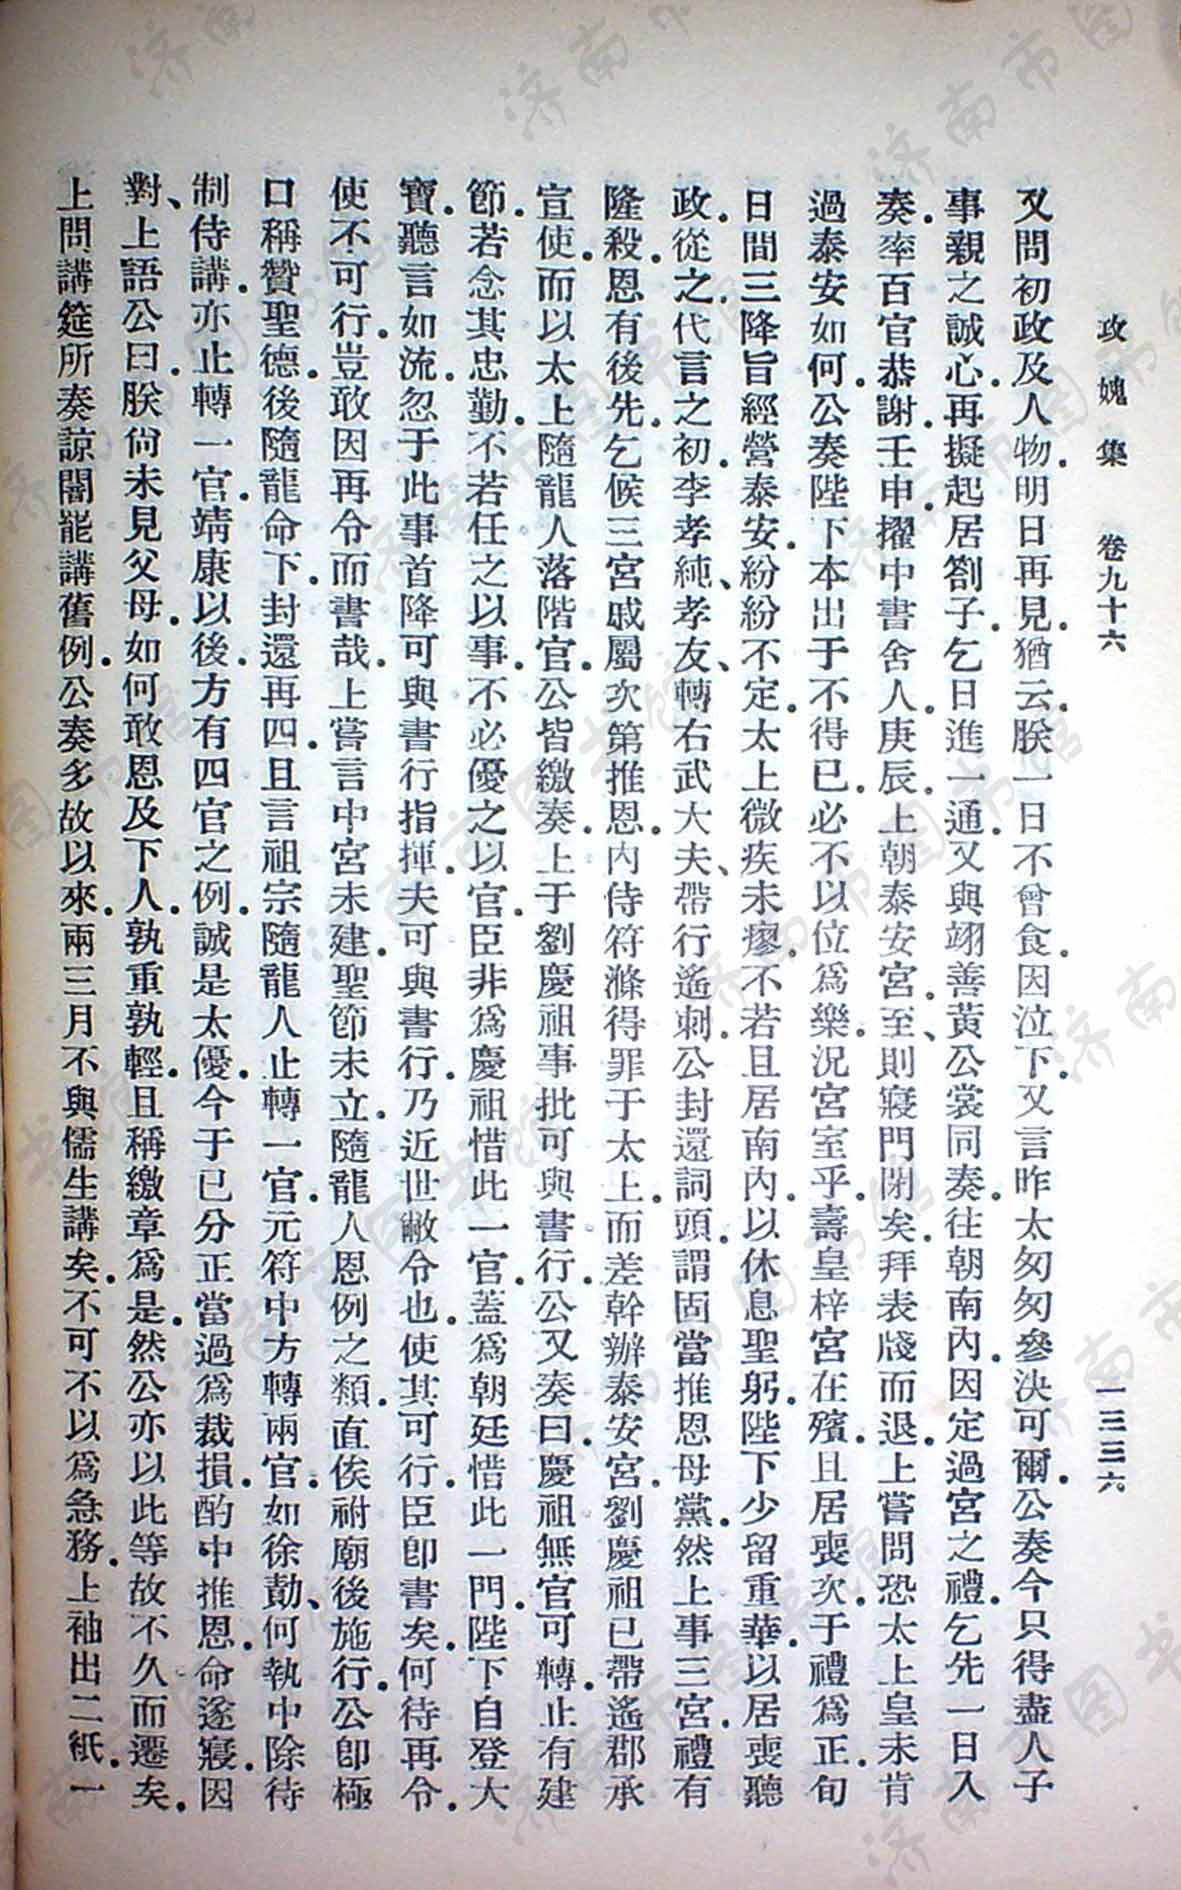 攻媿集　卷九十六　一三三六
又問初政及人物.明日再見.猶云.朕一日不曾食.因泣下.又言昨太匆匆參決可爾.公奏今只得盡人子
事親之誠心.再擬起居劄子.乞日進一通.又與翊善黃公裳同奏.往朝南內.因定過宮之禮.乞先一日入
奏.率百官恭謝.壬申.擢中書舍人.庚辰.上朝泰安宮.至、則寢門閉矣.拜表牋而退.上嘗問恐太上皇未肯
過泰安如何.公奏陛下本出于不得已.必不以位爲樂.況宮室乎.壽皇梓宮在殯.且居喪次.于禮爲正.旬
日間三降旨經營泰安.紛紛不定.太上微疾未瘳.不若且居南內.以休息聖躬.陛下少留重華.以居喪聽
政.從之.代言之初.李孝純、孝友、轉右武大夫、帶行遙刺.公封還詞頭.謂固當推恩母黨.然上事三宮.禮有
隆殺.恩有後先.乞候三宮戚屬次第推恩.內侍符滌得罪于太上.而差幹辦泰安宮.劉慶祖已帶遙郡承
宣使.而以太上隨龍人落階官.公皆繳奏.上于劉慶祖事批可與書行.公又奏曰.慶祖無官可轉.止有建
節.若念其忠勤.不若任之以事.不必優之以官.臣非爲慶祖惜此一官.蓋爲朝廷惜此一門.陛下自登大
寶.聽言如流.忽于此事首降可與書行指揮.夫可與書行.乃近世敝令也.使其可行.臣卽書矣.何待再令.
使不可行.豈敢因再令而書哉.上嘗言中宮未建.聖節未立.隨龍人恩例之類.直俟祔廟後施行.公卽極
口稱贊聖德.後隨龍命下.封還再四.且言祖宗隨龍人止轉一官.元符中方轉兩官.如徐勣、何執中除待
制侍講.亦止轉一官.靖康以後.方有四官之例.誠是太優.今于已分正當過爲裁損.酌中推恩.命遂寢.因
對、上語公曰.朕尙未見父母.如何敢恩及下人.孰重孰輕.且稱繳章爲是.然公亦以此等故不久而遷矣.
上問講筵所奏諒闇罷講舊例.公奏多故以來.兩三月不與儒生講矣.不可不以爲急務.上袖出二紙.一